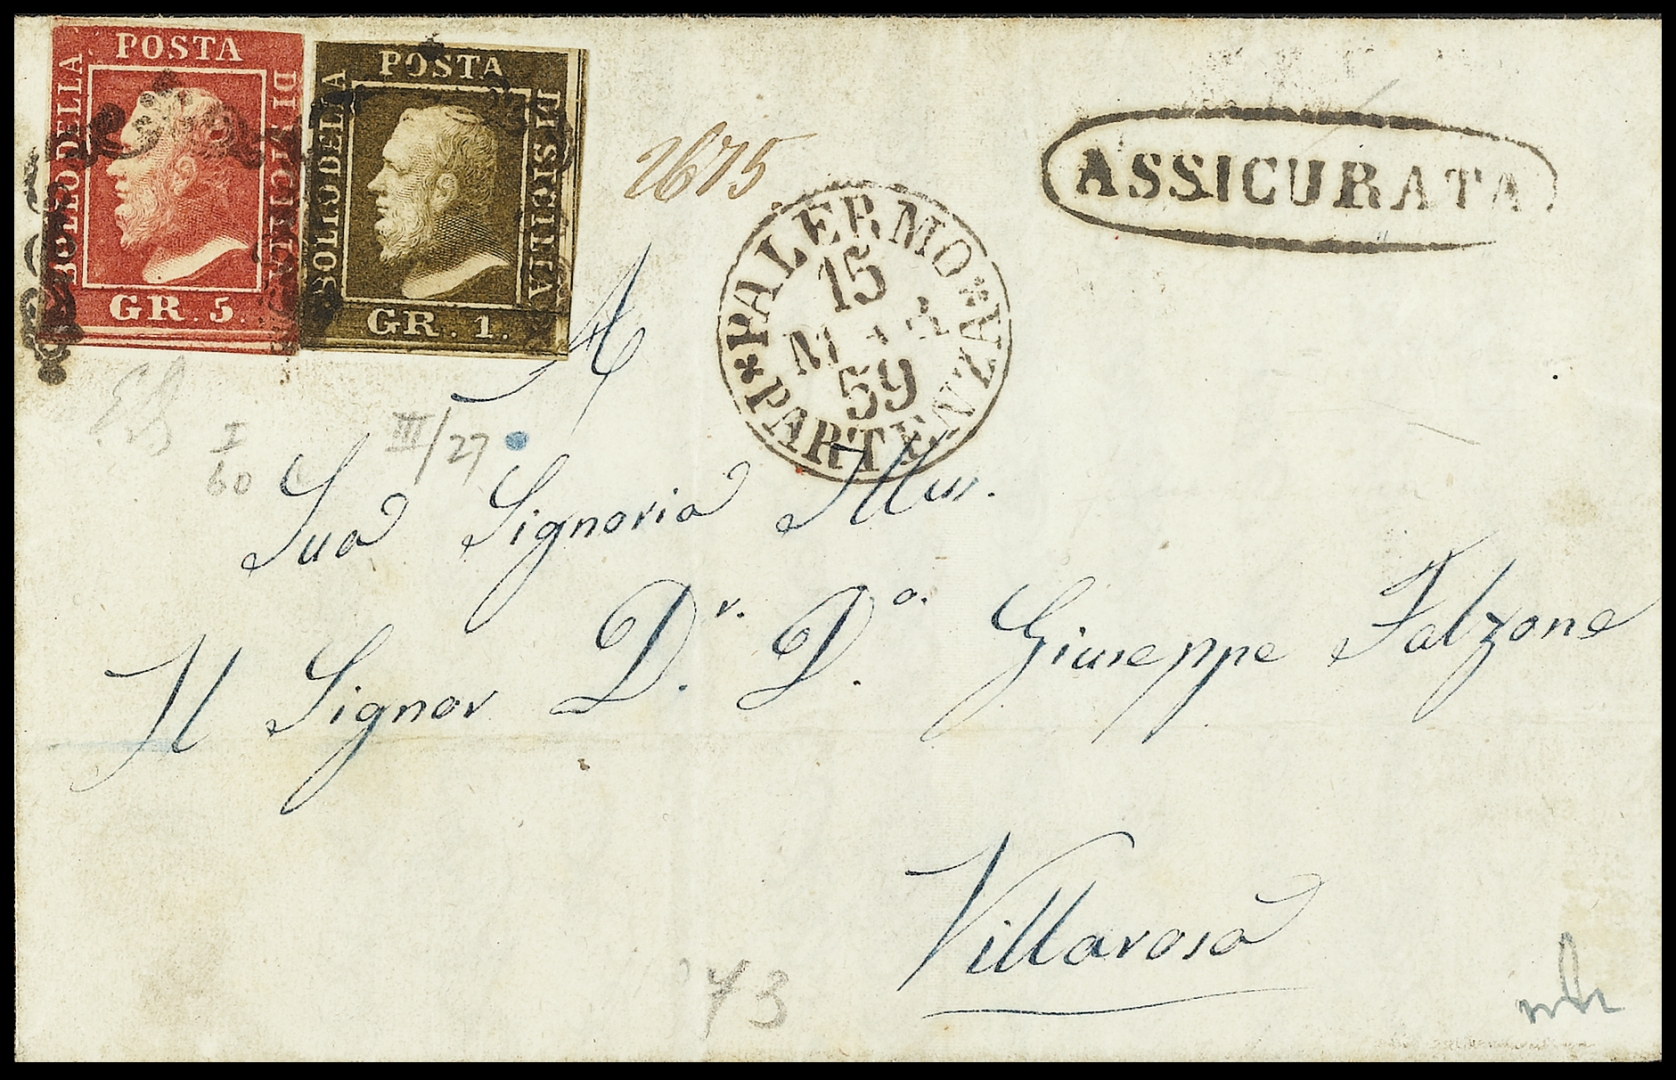 POSTA
BOLLO DELLA
DI SICILIA
GR. 5.
POSTA
BOLLO DELLA
DI SICILIA
GR. 1.
2675.
ASSICURATA
PALERMO
15
MAR
59
PARTENZA
A
I
60
III/27
Sua Signoria Illus.
Il Signor Dr. Do. Giuseppe Falzone
Villarosa
73